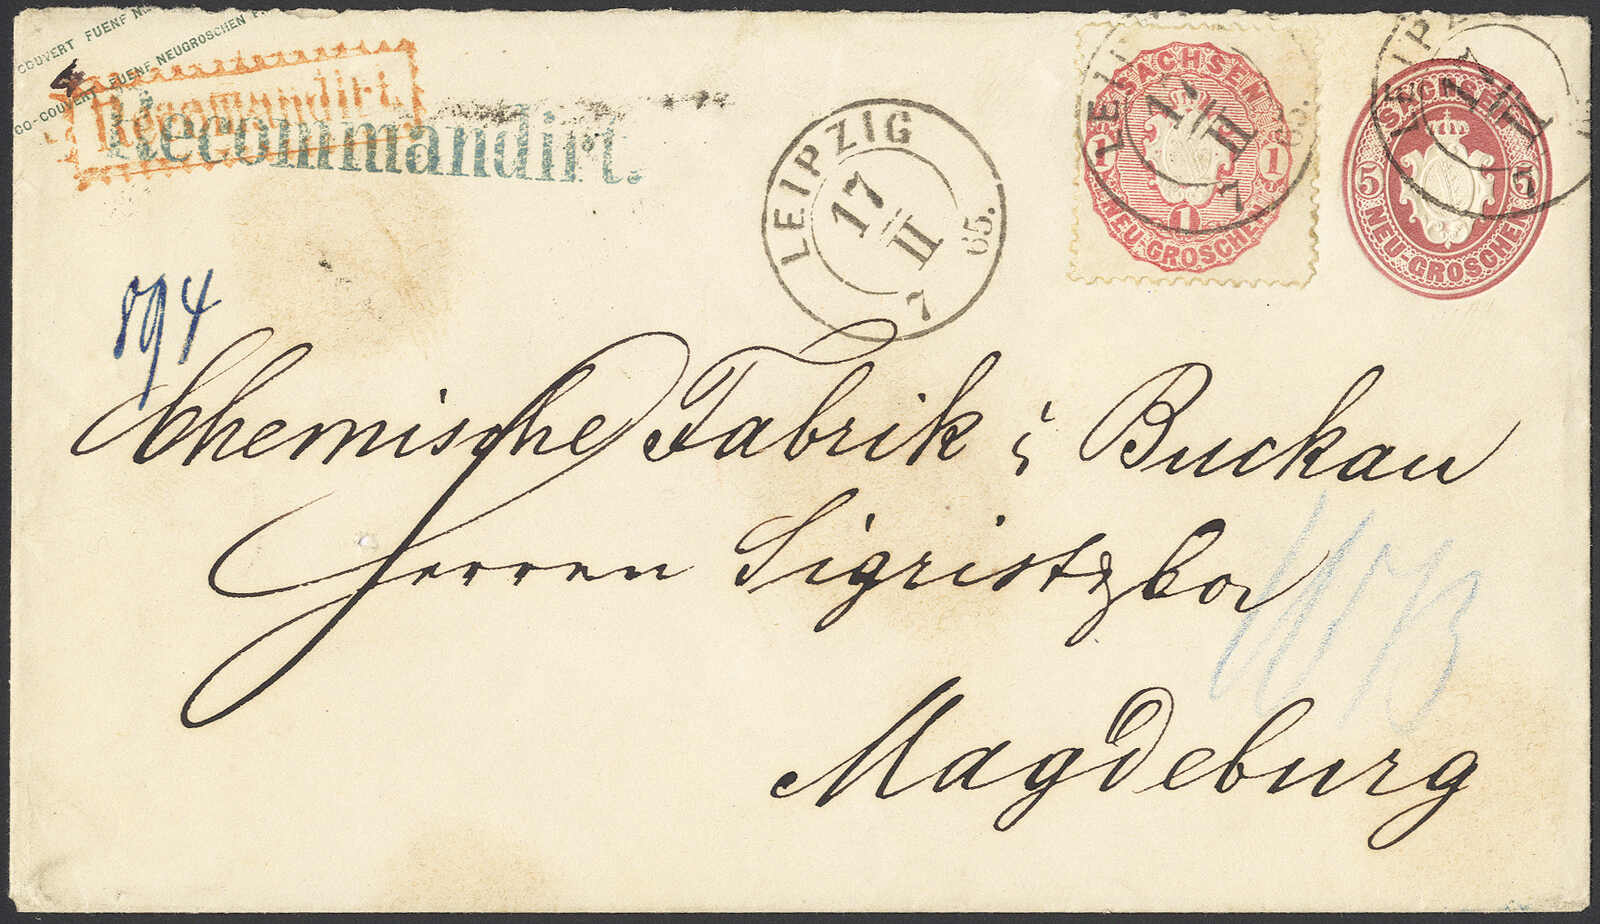 COUVERT FUENF N
CO-COUVERT FUENF NEUGROSCHEN F
Recommandirt
Recommandirt.
894
LEIPZIG
17
II
65.
7
LEIPZIG
17
II
65.
7
SACHSEN
1 1
1
NEU-GROSCHEN
LEIPZIG
17
II
7
SACHSEN
5 5
NEU-GROSCHEN
Chemische Fabrik i Buckau
Herren
Magdeburg